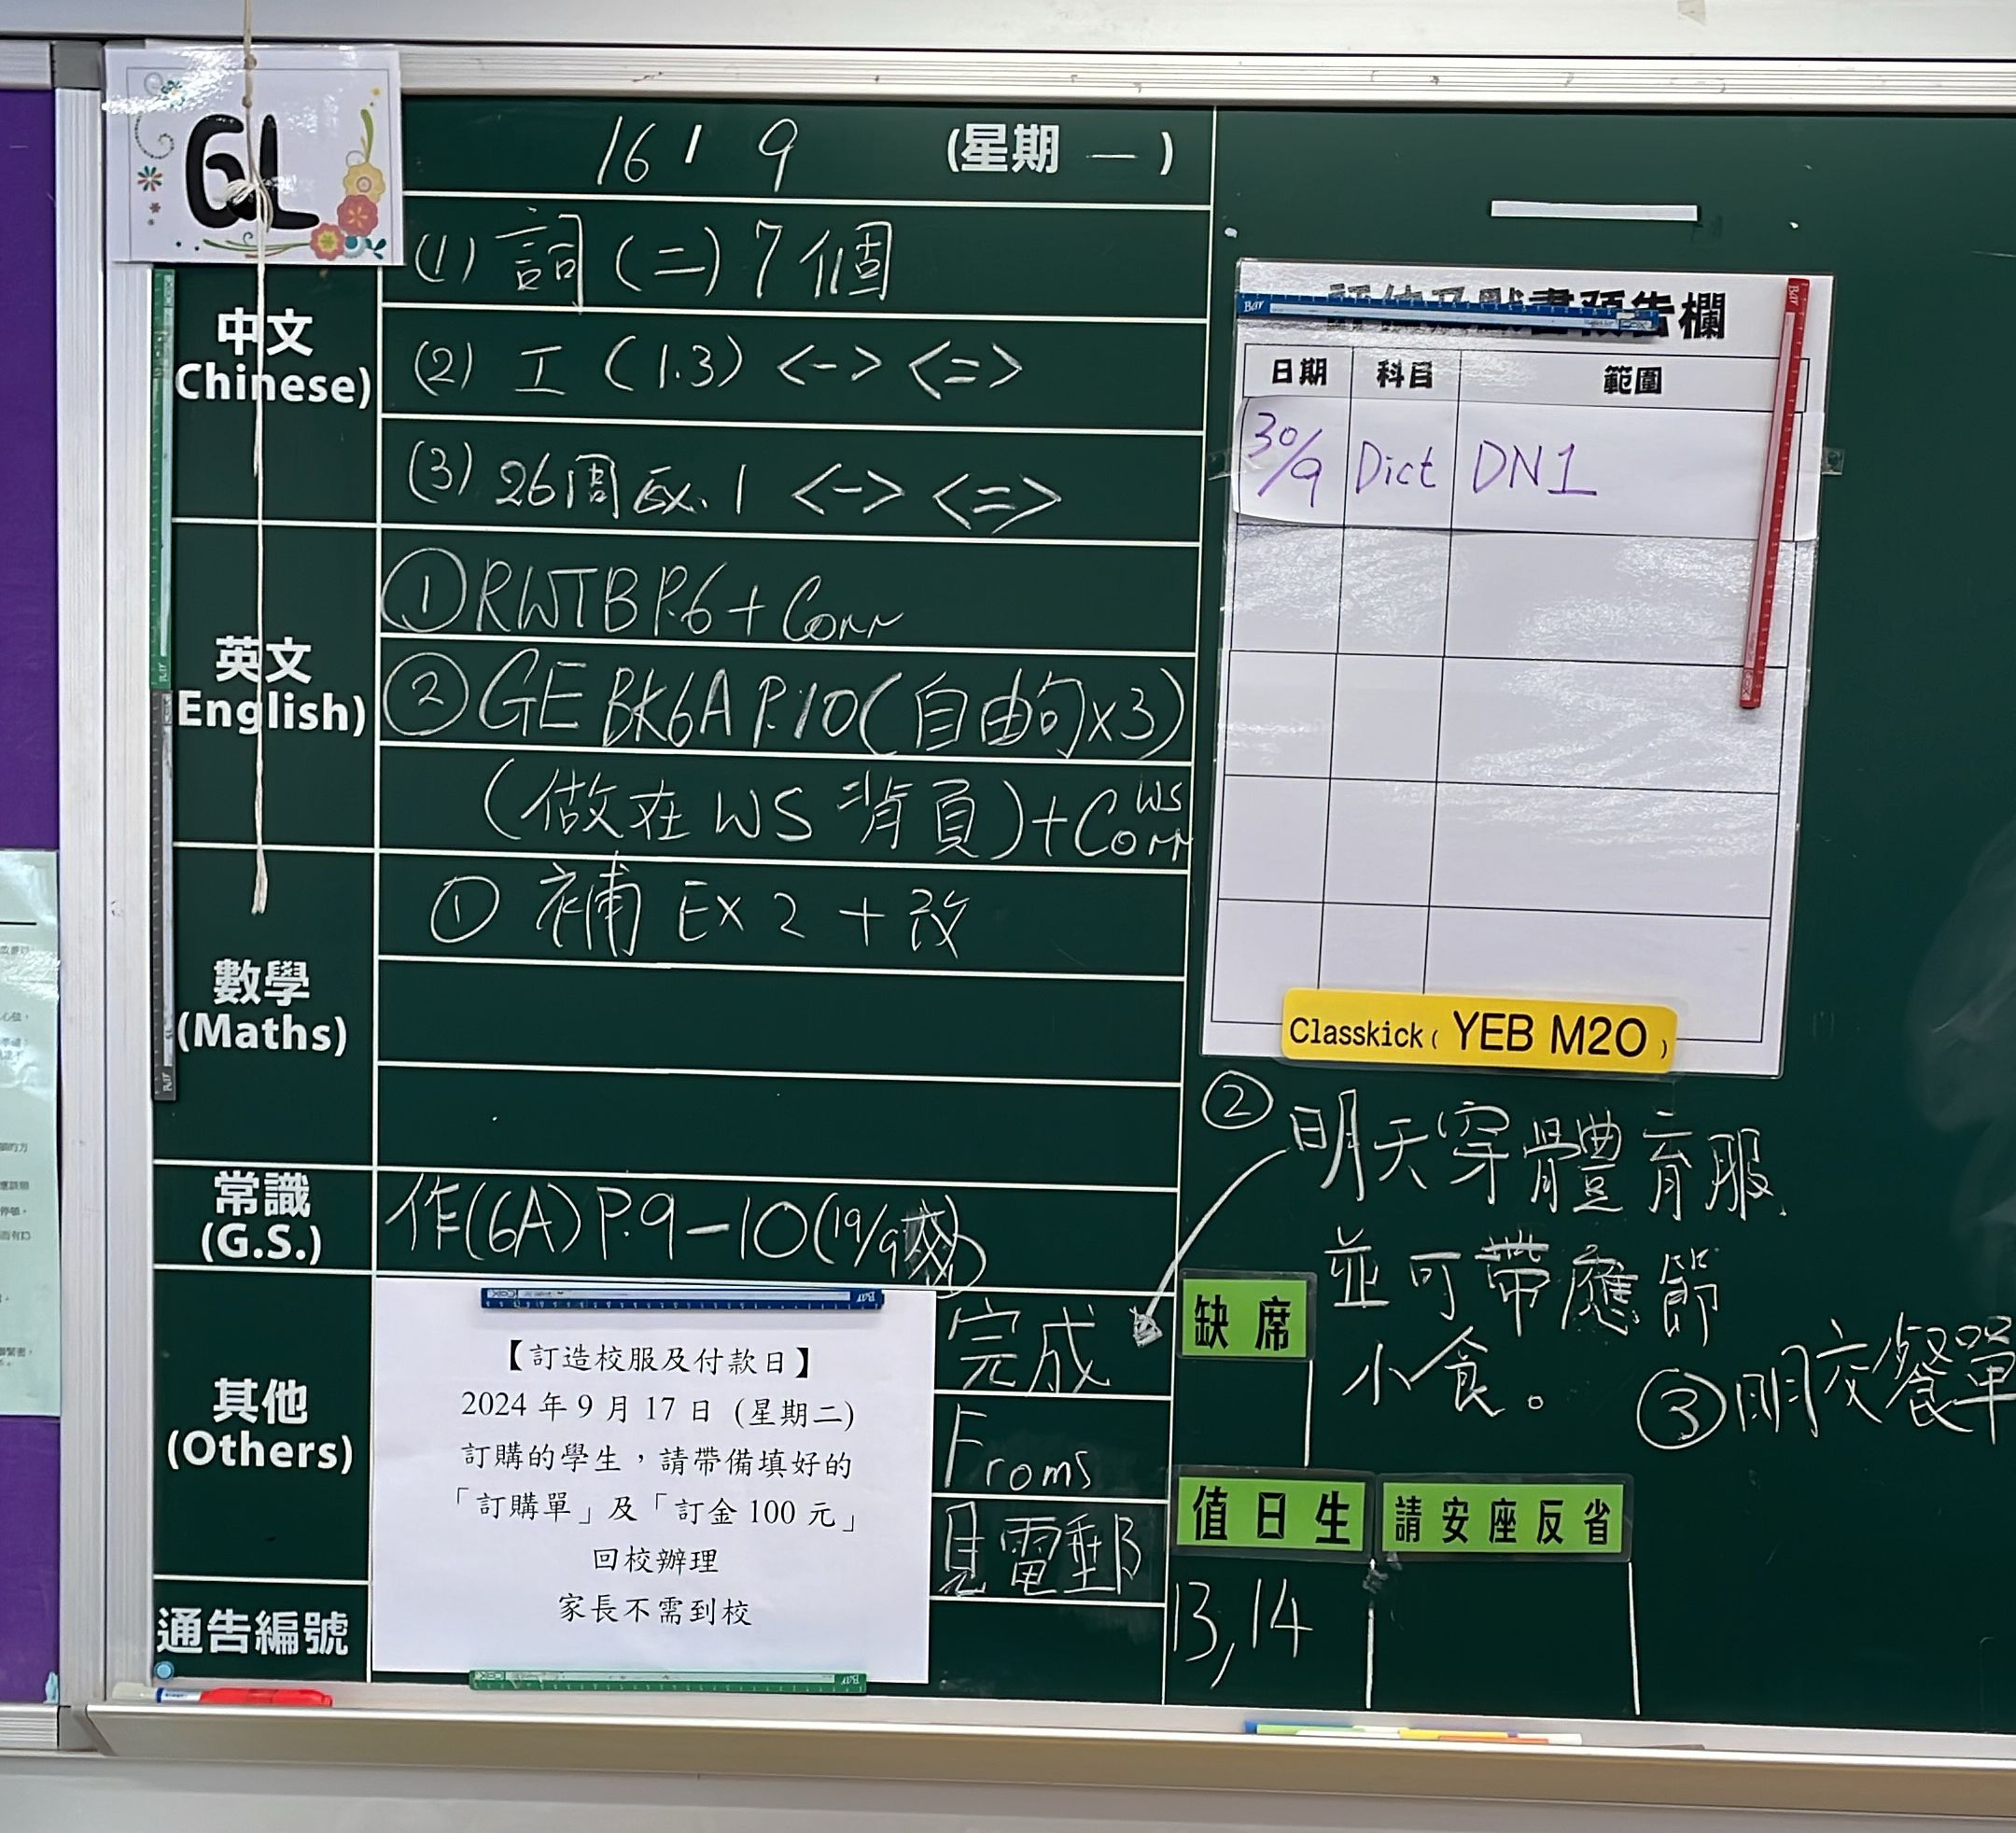 6L
16 / 9 (星期 一 )
中文
Chinese)
(1) 詞 (二) 7個
(2) 工 (1.3) <-> <=>
(3) 26周 Ex. 1 <-> <=>
英文
English)
① RWTB P.6 + Corr
② GE BK6A P.10 (自由句x3)
(做在 WS 背頁) + WS Corr
數學
(Maths)
① 補 Ex 2 + 改
常識
(G.S.)
作(6A) P.9-10 (19/9
其他
(Others)
【訂造校服及付款日】
2024 年 9 月 17 日 (星期二)
訂購的學生，請帶備填好的
「訂購單」及「訂金 100 元」
回校辦理
家長不需到校
完成
Froms
見電郵
通告編號
預告欄
日期 科目 範圍
30/9 Dict DN1
Classkick ( YEB M2O )
② 明天穿體育服
並可帶應節
小食。
③ 明交餐單
缺席
值日生
13, 14
請安座反省